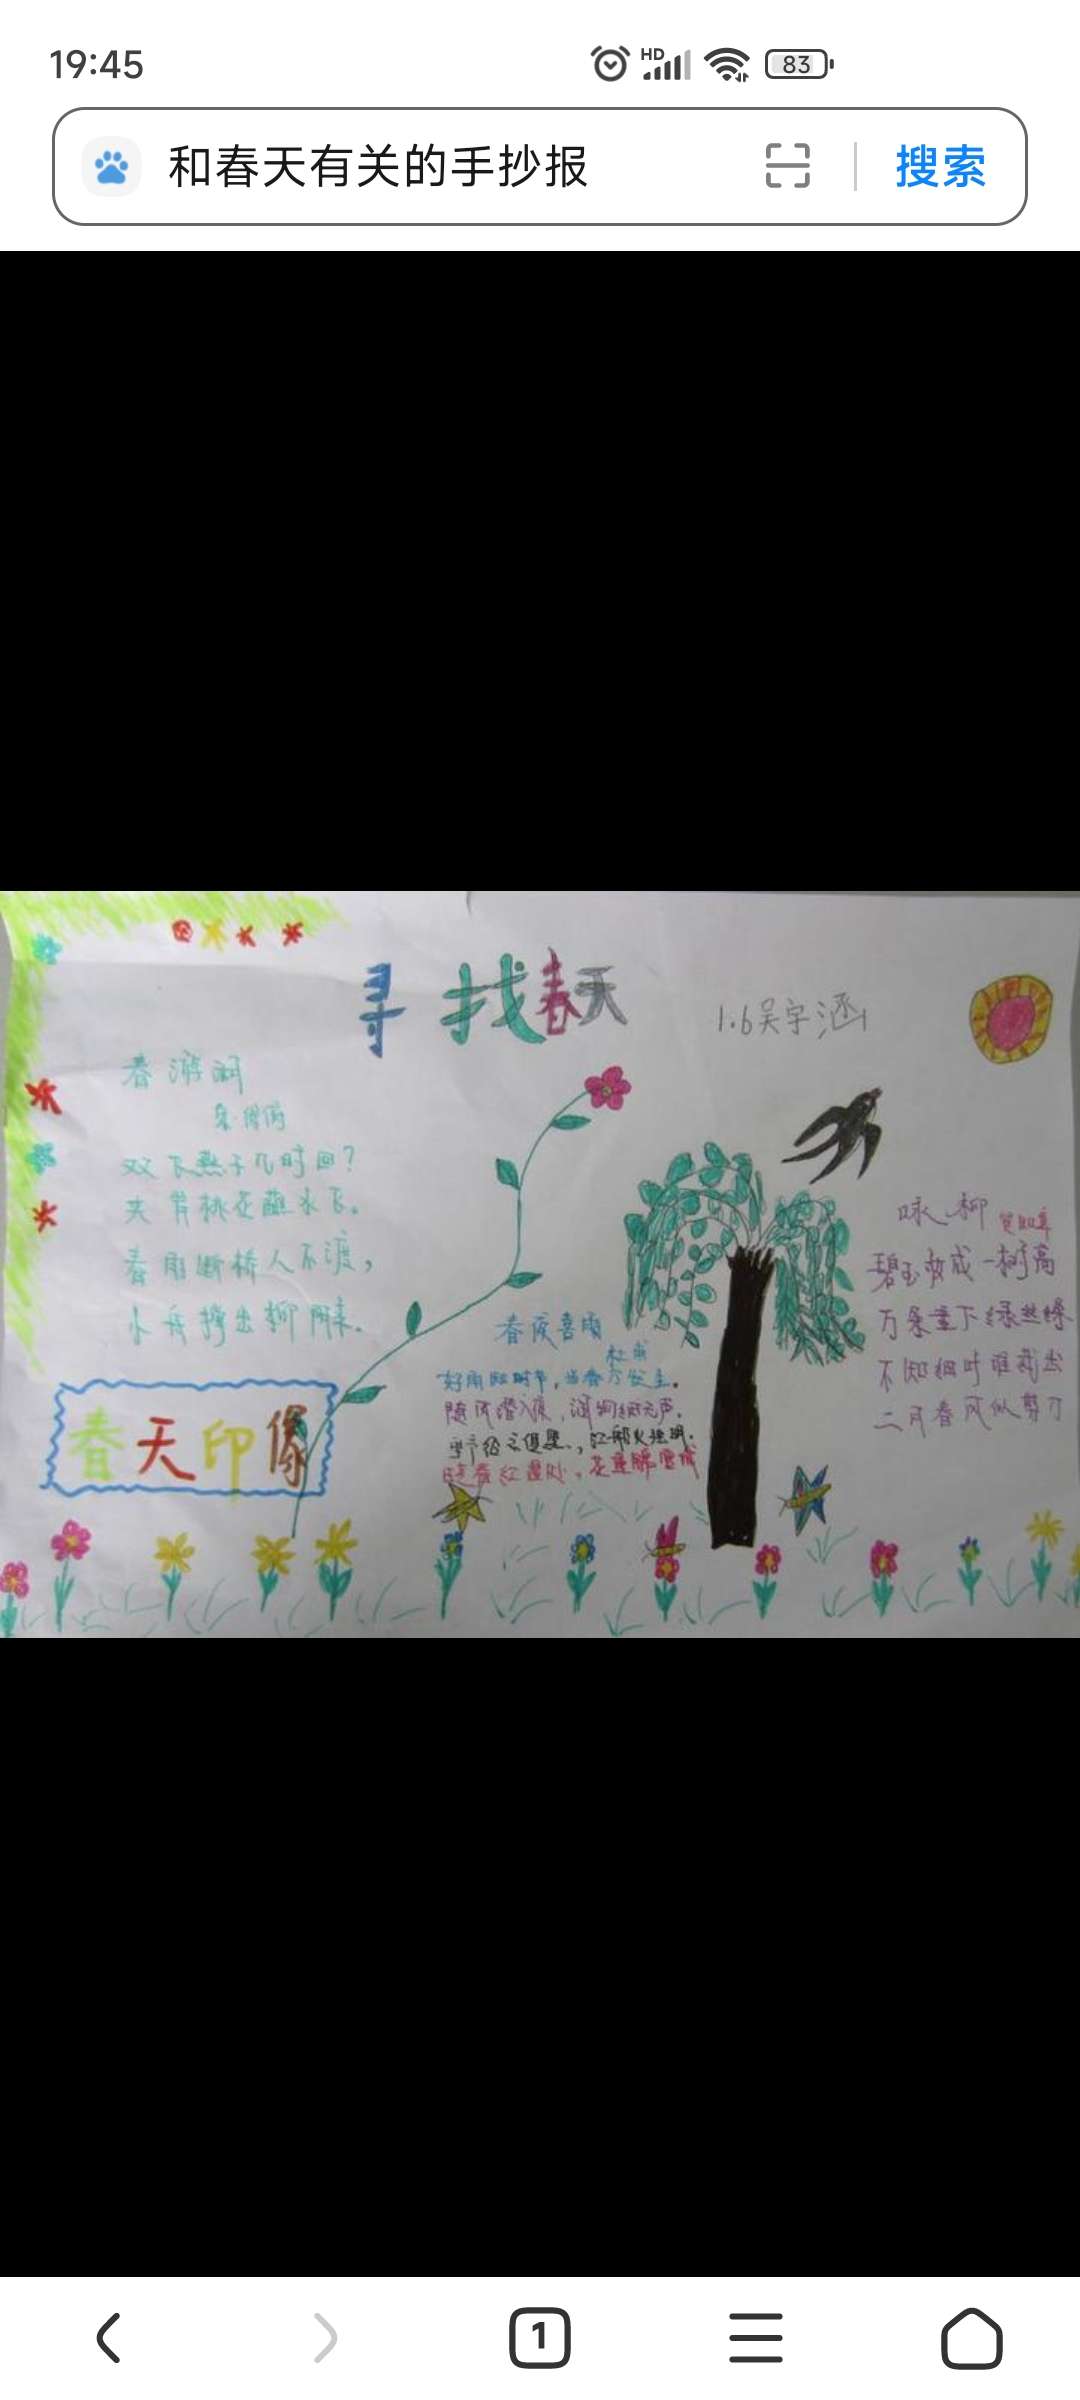 19:45
HD
83
和春天有关的手抄报
搜索
寻找春天
1.6吴宇涵
春游湖
双飞燕子几时回？
夹岸桃花蘸水飞。
春雨断桥人不渡，
小舟撑出柳阴来。
春天印像
春夜喜雨
杜甫
好雨知时节，当春乃发生。
随风潜入夜，润物细无声。
野径云俱黑，江船火独明。
晓看红湿处，花重锦官城
咏柳 贺知章
碧玉妆成一树高
万条垂下绿丝绦
不知细叶谁裁出
二月春风似剪刀
1